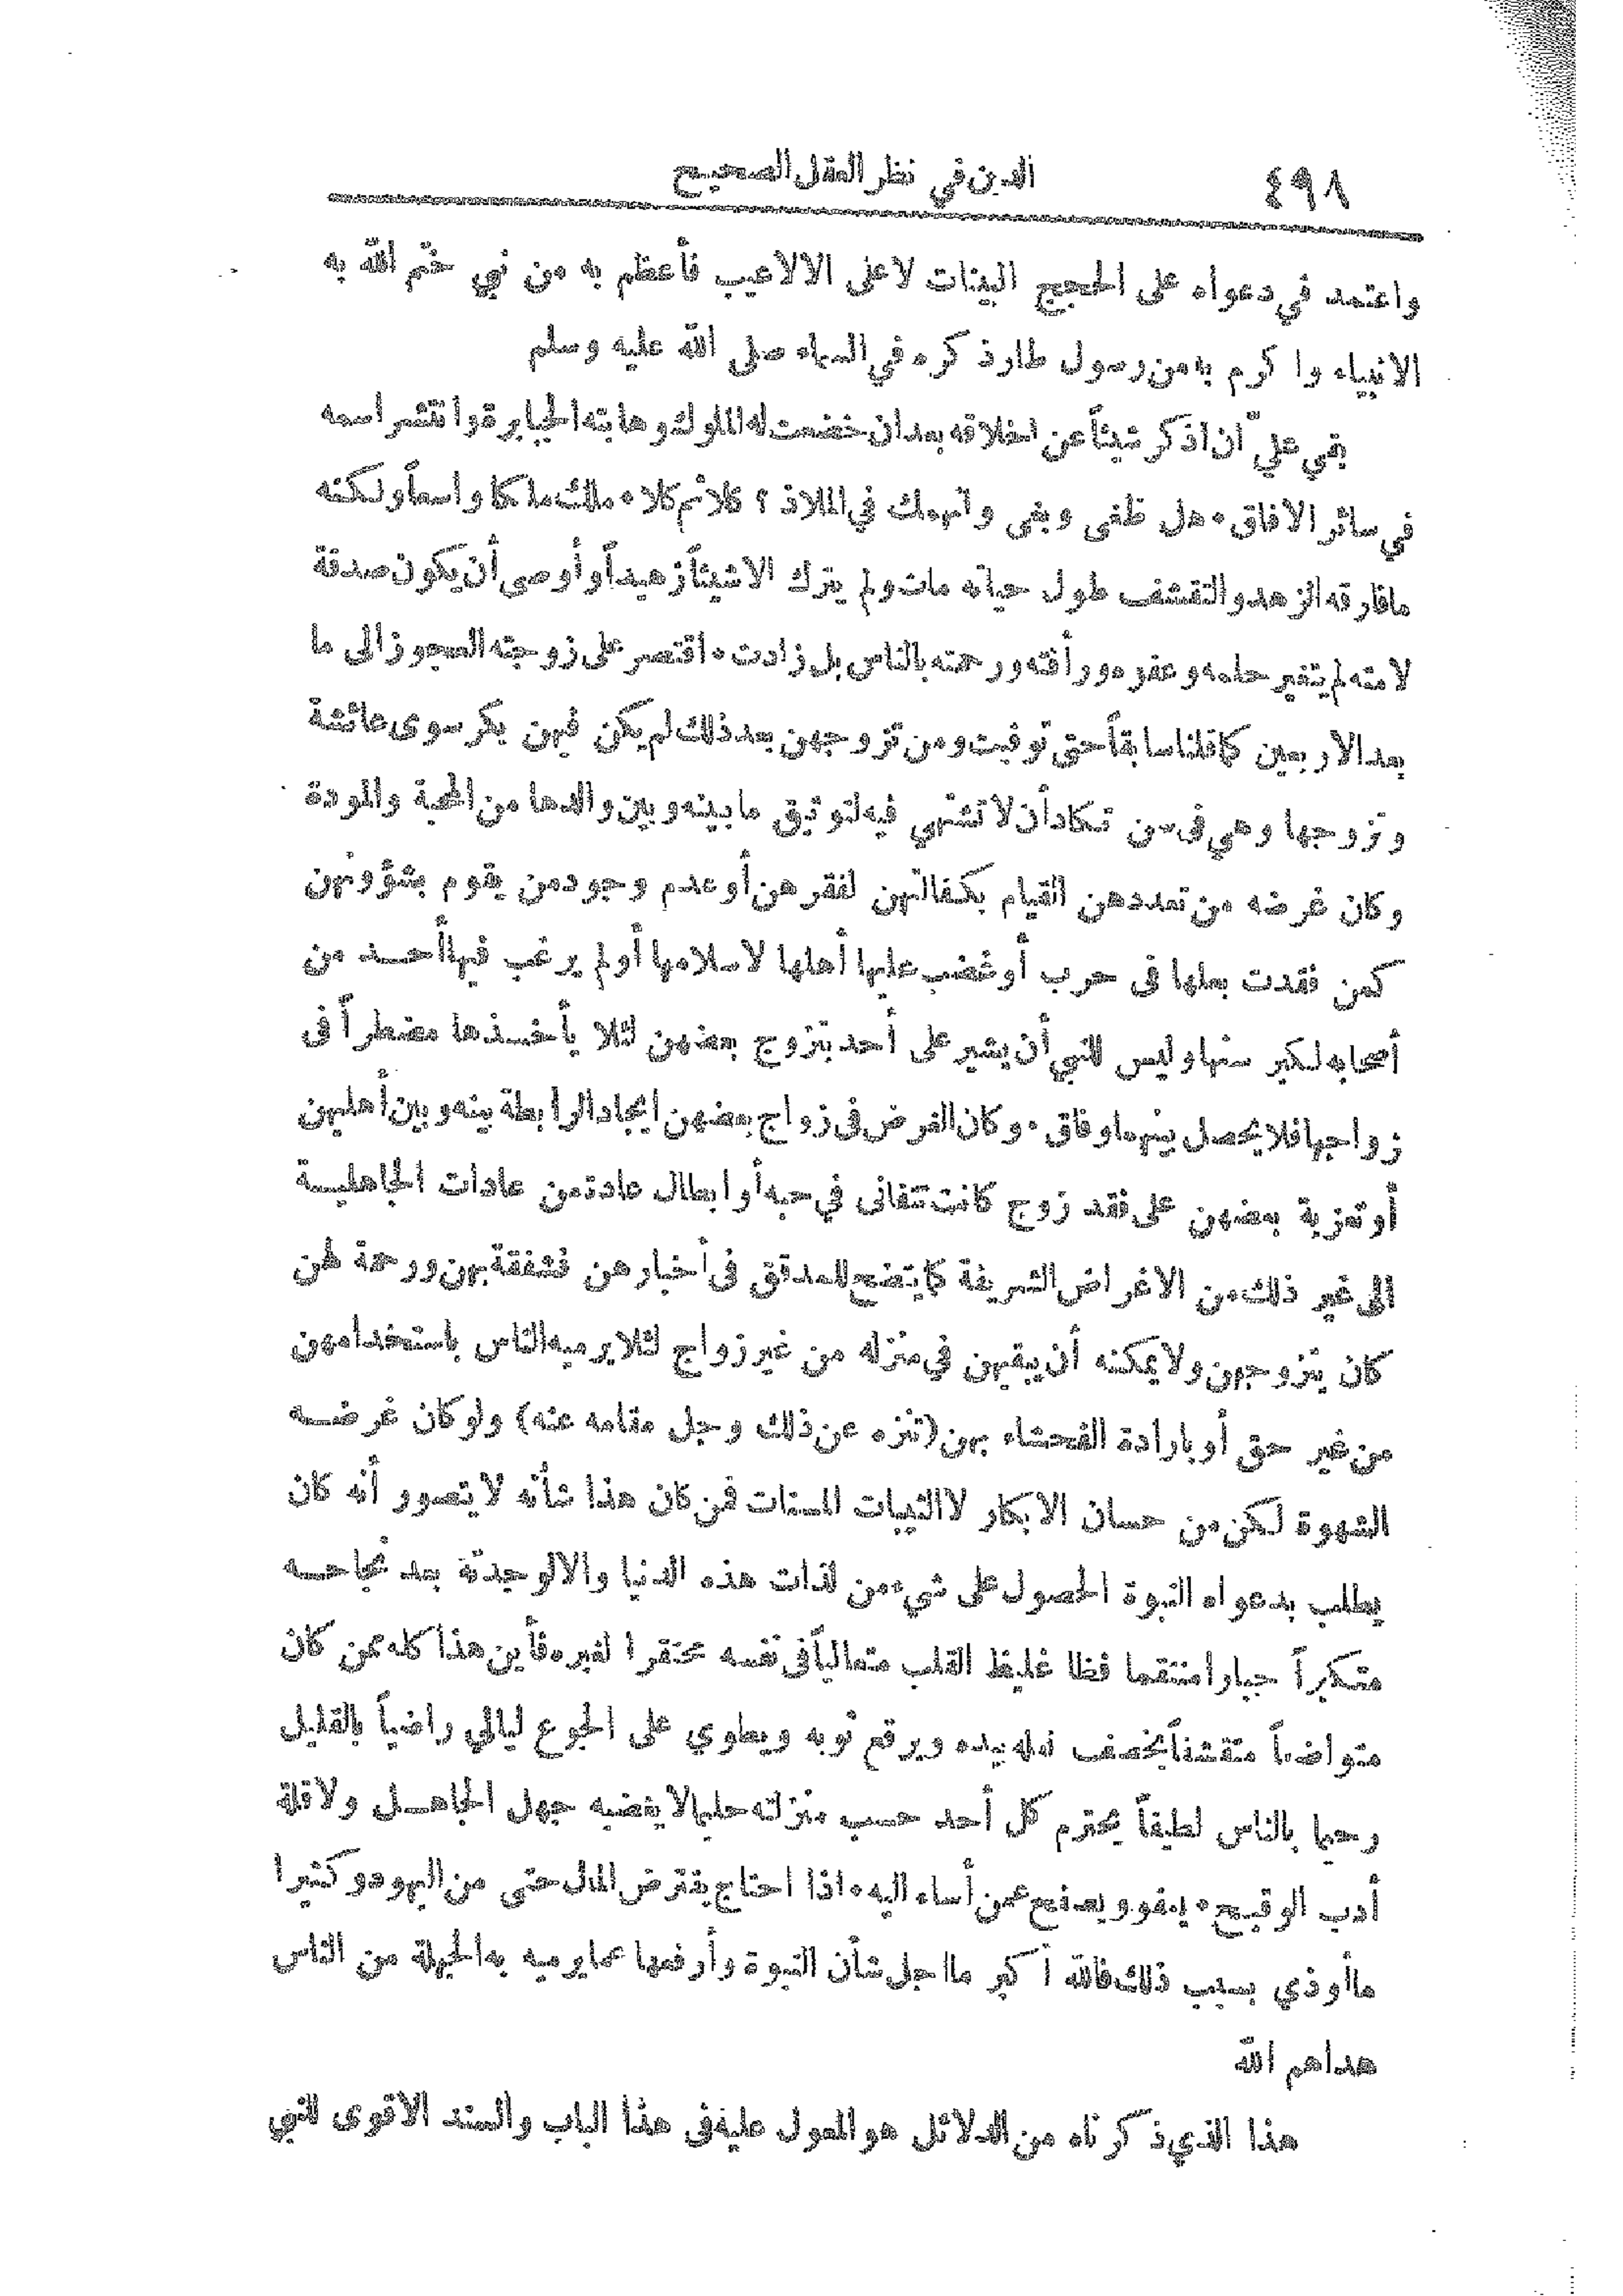 ٤٩٨ الدين في نظر العقل الصحيح
واعتمد في دعواه على الحجج البينات لا على الالاعيب فأعظم به من نبي ختم الله به
الانبياء واكرم به من رسول طار ذكره في السماء صلى الله عليه وسلم
بقي عليّ أن اذكر شيئاً عن اخلاقه بعد ان خضعت له الملوك وهابته الجبابرة وانتشر اسمه
في سائر الآفاق. هل طغى وبغى وانهمك في الملاذ؟ كلا ثم كلا. ملك ملكا واسعاً ولكنه
مافارقه الزهد والتقشف طول حياته مات ولم يترك الا شيئاً زهيداً وأوصى أن يكون صدقة
لامته لم يتغير حلمه وعفوه ورأفته ورحمته بالناس بل زادت. اقتصر على زوجته العجوز الى ما
بعد الاربعين كما قلنا سابقاً حتى توفيت ومن تزوجهن بعد ذلك لم يكن فيهن بكر سوى عائشة
وتزوجها وهي فى سن تكاد أن لا تشتهي فيه لتوثيق ما بينه وبين والدها من المحبة والمودة
وكان غرضه من تعددهن القيام بكفالتهن لفقرهن أو عدم وجود من يقوم بشؤونهن
كمن فقدت بعلها فى حرب أو غضب عليها أهلها لاسلامها أو لم يرغب فيها أحد من
أصحابه لكبر سنها وليس للنبي أن يشير على أحد بتزوج بعضهن لئلا يأخذها مضطراً فى
زواجها فلا يحصل بينهما وفاق. وكان الغرض فى زواج بعضهن ايجاد الرابطة بينه وبين أهليهن
أو تعزية بعضهن على فقد زوج كانت تتفانى في حبه أو ابطال عادة من عادات الجاهلية
الى غير ذلك من الاغراض الشريفة كما يتضح للمدقق فى أخبارهن فشفقة بهن ورحمة لهن
كان يتزوجهن ولا يمكنه أن يبقيهن في منزله من غير زواج لئلا يرميه الناس باستخدامهن
من غير حق أو بارادة الفحشاء بهن (تنزه عن ذلك وجل مقامه عنه) ولو كان غرضه
الشهوة لكن من حسان الابكار لا الثيبات المسنات فمن كان هذا شأنه لا يتصور أنه كان
يطلب بدعواه النبوة الحصول على شيء من لذات هذه الدنيا والا لوجدته بعد نجاحه
متكبراً جبارا منتقما فظا غليظ القلب متعالياً فى نفسه محتقرا لغيره فأين هذا كله ممن كان
متواضعاً متقشفاً يخصف نعله بيده ويرقع ثوبه ويطوي على الجوع ليالي راضياً بالقليل
رحيما بالناس لطيفاً يحترم كل أحد حسب منزلته حليما لا يغضبه جهل الجاهل ولا قلة
أدب الوقيح. يعفو ويصفح عمن أساء اليه. اذا احتاج يقترض المال حتى من اليهود وكثيرا
ما أوذي بسبب ذلك فالله أكبر ما اجل شأن النبوة وأرفعها عما يرميه به الجهلة من الناس
هداهم الله
هذا الذي ذكرناه من الدلائل هو المعول عليه فى هذا الباب والسند الاقوى للنبي